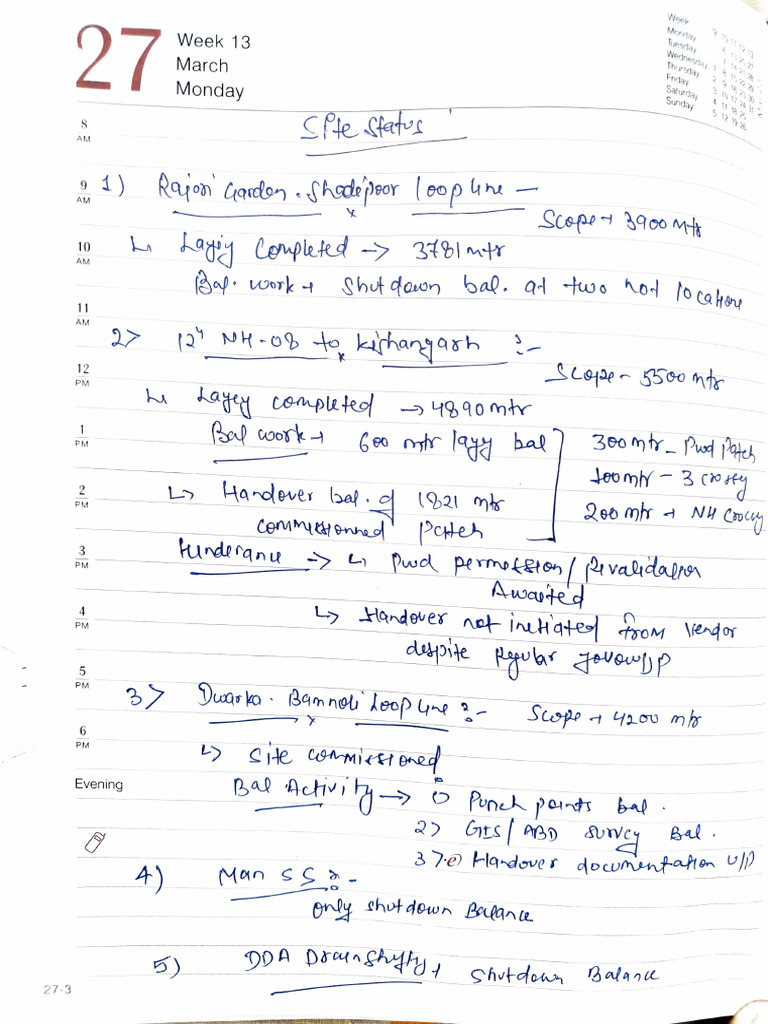 27
Week 13
March
Monday
Week
Monday
Tuesday
Wednesday
Thursday
Friday
Saturday
Sunday
Site Status
8 AM
9 AM
1) Rajori Garden. Shadipoor loop line -
Scope → 3900 mtr
10 AM
↳ Layig Completed → 3781 mtr
Bal. work → Shutdown bal. at two not location
11 AM
2> 12" NH-08 to Kishangarh :-
12 PM
Scope - 5500 mtr
↳ Layey completed → 4890 mtr
1 PM
Bal work → 600 mtr layy bal
300 mtr - Pwd Patch
100 mtr - 3 crossey
200 mtr → NH Croccy
2 PM
↳ Handover bal. of 1821 mtr
commissionned Patch
3 PM
Hunderance → ↳ Pwd permession / Revalidation
Awaited
4 PM
↳ Handover not initiated from Vendor
despite Regular followUP
5 PM
3> Dwarka. Bamnoli Loop Line :- Scope → 4200 mtr
6 PM
↳ Site commissioned
Evening
Bal Activity → 1) Punch points bal.
2> GIS / ABD survey Bal.
3> Handover documentation U/P
4) Man SS :-
only shutdown Balance
5) DDA Drain Shifty → Shutdown Balance
27-3